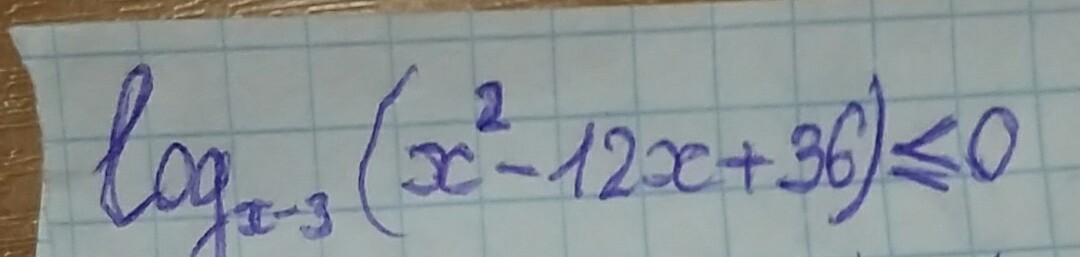 log_{x-3} (x² - 12x + 36) ≤ 0